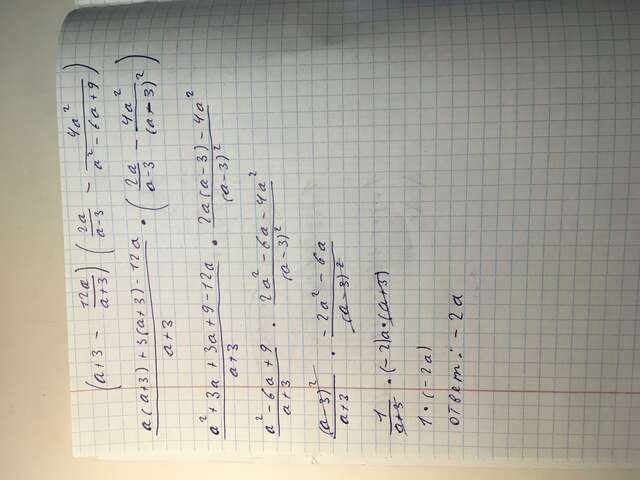 (a+3 - 12a/(a+3)) (2a/(a-3) - 4a²/(a²-6a+9))
(a(a+3)+3(a+3)-12a)/(a+3) • (2a/(a-3) - 4a²/(a-3)²)
(a²+3a+3a+9-12a)/(a+3) • (2a(a-3)-4a²)/(a-3)²
(a²-6a+9)/(a+3) • (2a²-6a-4a²)/(a-3)²
(a-3)²/(a+3) • (-2a²-6a)/(a-3)²
1/(a+3) • (-2)a•(a+3)
1•(-2a)
ответ: -2a